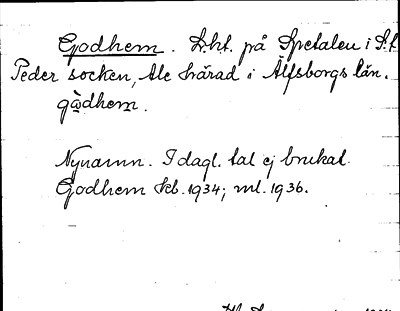 Godhem. L:ht. på Spetalen i S:t
Peder socken, Ale härad i Älfsborgs län.
gòdhem.
Nynamn. I dagl. tal ej brukat.
Godhem Kb. 1934; ml. 1936.